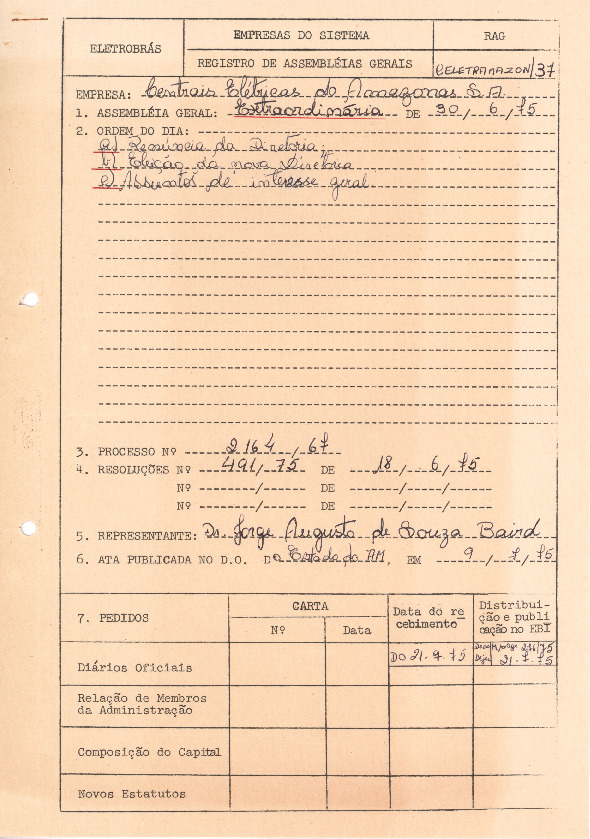 ELETROBRÁS
EMPRESAS DO SISTEMA
RAG
REGISTRO DE ASSEMBLÉIAS GERAIS
CELETRAMAZON/37
EMPRESA: Centrais Elétricas do Amazonas S.A.
1. ASSEMBLÉIA GERAL: Extraordinária DE 30/6/75
2. ORDEM DO DIA:
a) Renúncia da Diretoria;
b) Eleição da nova Diretoria
c) Assuntos de interesse geral
3. PROCESSO Nº 2164/67
4. RESOLUÇÕES Nº 491/75 DE 18/6/75
Nº / DE / /
Nº / DE / /
5. REPRESENTANTE: Dr. Jorge Augusto de Souza Baird
6. ATA PUBLICADA NO D.O. Do Estado do AM, EM 9/7/75
7. PEDIDOS
CARTA
Nº
Data
Data do re
cebimento
Distribui-
ção e publi
cação no EBI
Diários Oficiais
DO 21.7.75
21.7.75
Relação de Membros
da Administração
Composição do Capital
Novos Estatutos